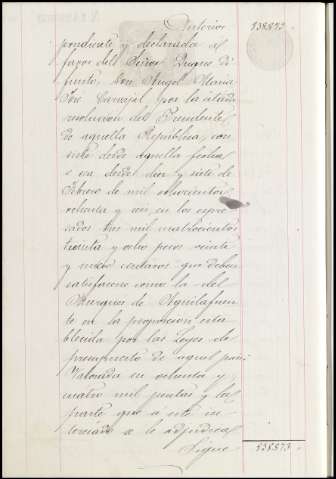 Anterior 538873
pondiente y declarada a
favor del Señor Duque di
funto, Don Angel Maria
José Carvajal por la citada
resolucion del Presidente
de aquella República, con
rédito desde aquella fecha
o sea desde diez y siete de
Febrero de mil ochocientos
ochenta y seis, en los expre
sados tres mil cuatrocientos
treinta y ocho pesos veinte
y nueve centavos que deben
satisfacerse como la del
Marques de Aguilafuen
te en la proporcion esta
blecida por las Leyes de
presupuesto de aquel pais
Valorada en ochenta y
cuatro mil pesetas y la
parte que a este in
teresado se le adjudica
Sigue 538873